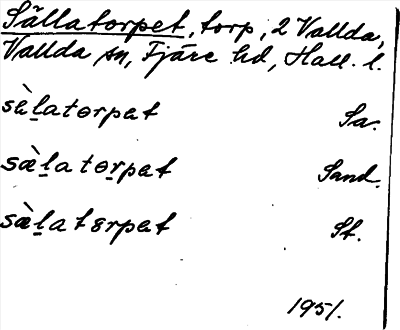 Sällatorpet, torp, 2 Vallda,
Vallda sn, Fjäre hd, Hall. l.
sɛ̀l̠atɵrpɛt Sa.
sæ̀l̠atɵr̠pɛt Sand.
sæ̀l̠atɵrpɛt St.
1951.